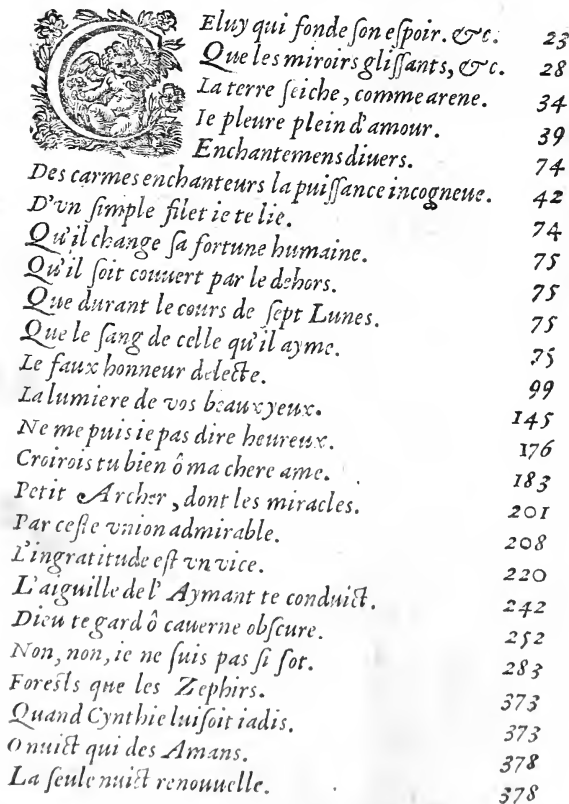 CEluy qui fonde ſon eſpoir. &c. 23
Que les miroirs gliſſants, &c. 28
La terre ſeiche, comme arene. 34
Ie pleure plein d'amour. 39
Enchantemens diuers. 74
Des carmes enchanteurs la puiſſance incogneue. 42
D'vn ſimple filet ie te lie. 74
Qu'il change ſa fortune humaine. 75
Qu'il ſoit couuert par le dehors. 75
Que durant le cours de ſept Lunes. 75
Que le ſang de celle qu'il ayme. 75
Le faux honneur delecte. 99
La lumiere de vos beaux yeux. 145
Ne me puis ie pas dire heureux. 176
Croirois tu bien ô ma chere ame. 183
Petit Archer, dont les miracles. 201
Par ceſte vnion admirable. 208
L'ingratitude eſt vn vice. 220
L'aiguille de l'Aymant te conduict. 242
Dieu te gard ô cauerne obſcure. 252
Non, non, ie ne ſuis pas ſi ſot. 283
Foreſts que les Zephirs. 373
Quand Cynthie luiſoit iadis. 373
O nuict qui des Amans. 378
La ſeule nuict renouuelle. 378